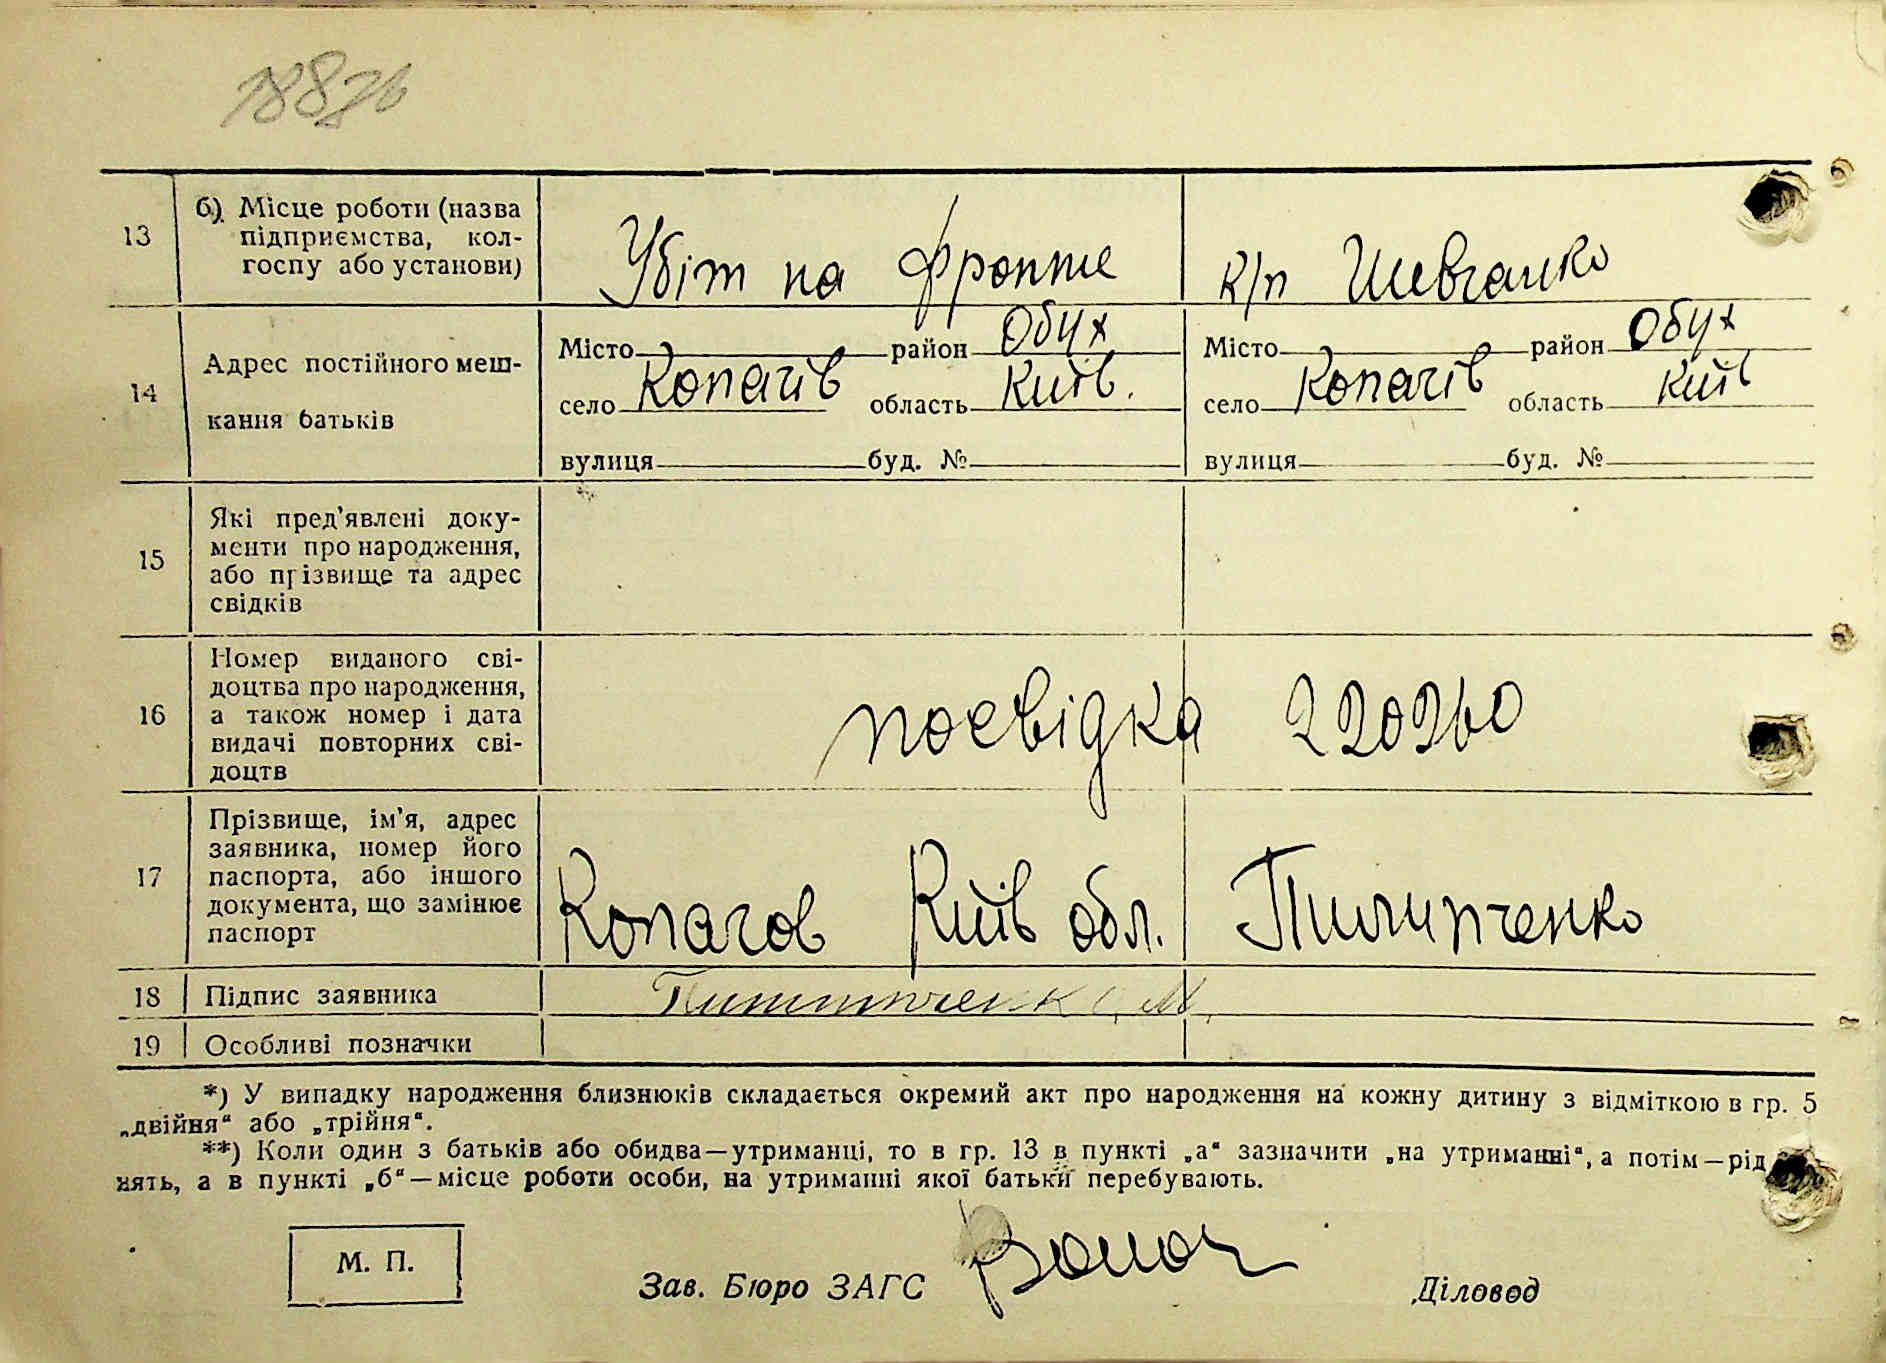 13
б) Місце роботи (назва
підприємства, кол-
госпу або установи)
Убіт на фронте
к/п Шевченко
14
Адрес постійного меш-
кання батьків
Місто район Обух
село Копачів область Київ.
вулиця буд. №
Місто район Обух
село Копачів область Київ
вулиця буд. №
15
Які пред'явлені доку-
менти про народження,
або прізвище та адрес
свідків
16
Номер виданого сві-
доцтва про народження,
а також номер і дата
видачі повторних сві-
доцтв
посвідка 220260
17
Прізвище, ім'я, адрес
заявника, номер його
паспорта, або іншого
документа, що замінює
паспорт
Копачов Київ обл. Пилипченко
18 Підпис заявника
19 Особливі позначки
*) У випадку народження близнюків складається окремий акт про народження на кожну дитину з відміткою в гр. 5
„двійня“ або „трійня“.
**) Коли один з батьків або обидва—утриманці, то в гр. 13 в пункті „а“ зазначити „на утриманні“, а потім—рід
нять, а в пункті „б“—місце роботи особи, на утриманні якої батьки перебувають.
М. П.
Зав. Бюро ЗАГС
Діловод